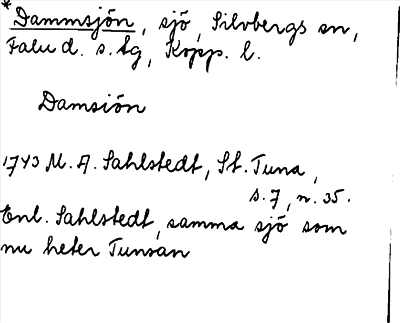 * Dammsjön, sjö, Silvbergs sn,
Falu d. s. lg, Kopp. l.
Damsiön
1743 M. A. Sahlstedt, St. Tuna,
s. 7, n. 35.
Enl. Sahlstedt, samma sjö som
nu heter Tunsan